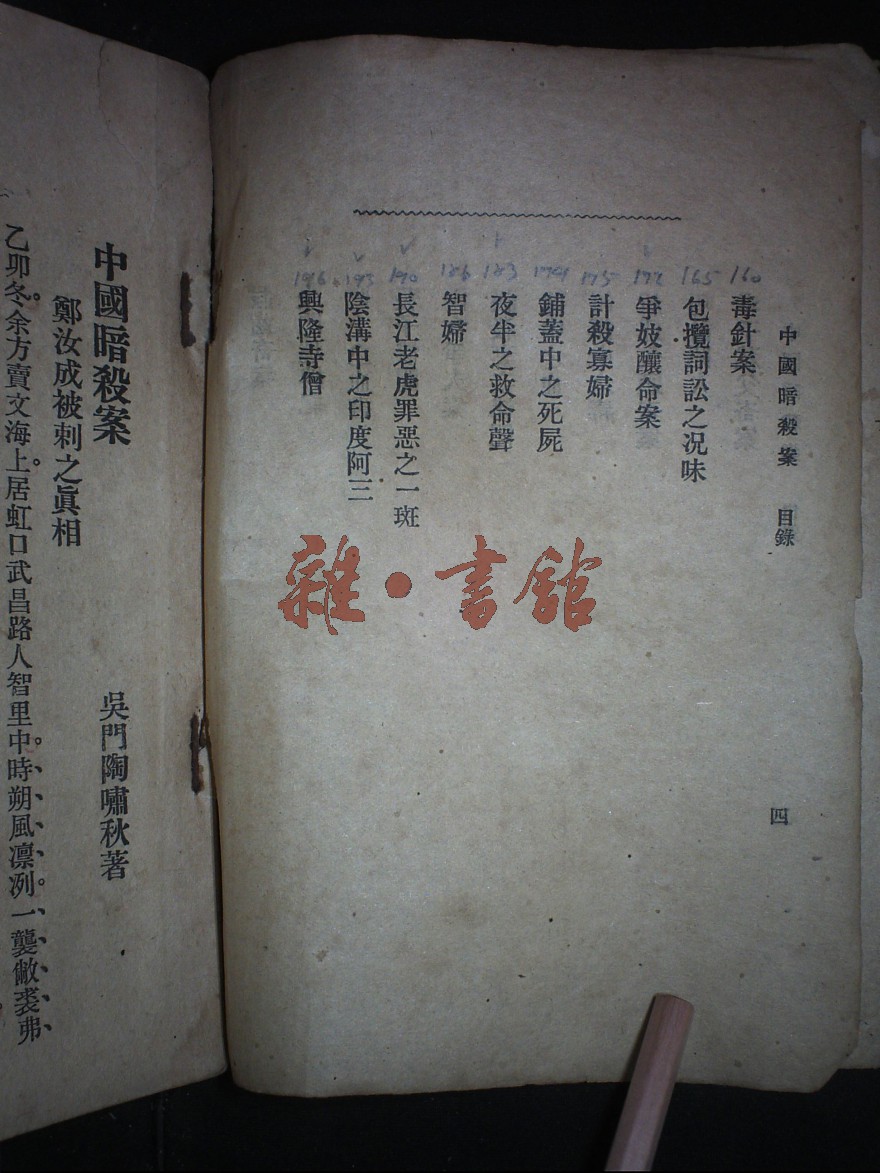 中國暗殺案　目錄
四
160
毒針案
165
包攬詞訟之况味
172
爭妓釀命案
175
計殺寡婦
179
鋪蓋中之死屍
183
夜半之救命聲
186
智婦
190
長江老虎罪惡之一斑
193
陰溝中之印度阿三
196
興隆寺僧
雜·書館
中國暗殺案
吳門陶嘯秋著
鄭汝成被刺之眞相
乙卯冬。余方賣文海上。居虹口武昌路人智里中。時、朔、風、凛、冽。一、襲、敝、裘、弗、